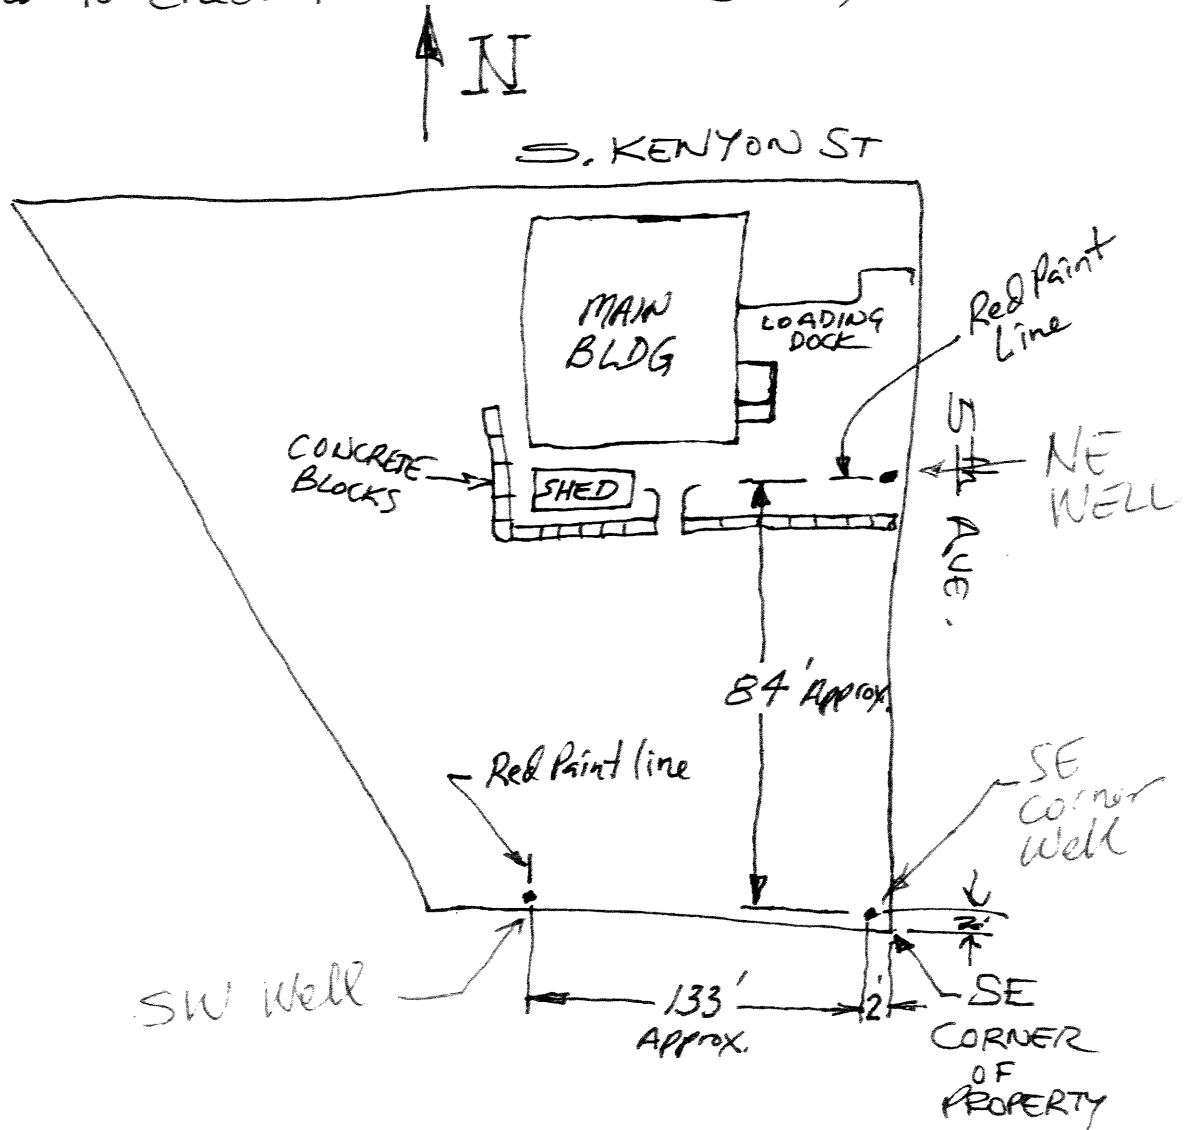 to
N
S. KENYON ST
MAIN
BLDG
LOADING
DOCK
Red Paint
Line
CONCRETE
BLOCKS
SHED
5th AVE.
NE
WELL
84' Approx.
Red Paint line
SE
Corner
Well
2'
SW Well
133'
Approx.
2'
SE
CORNER
OF
PROPERTY